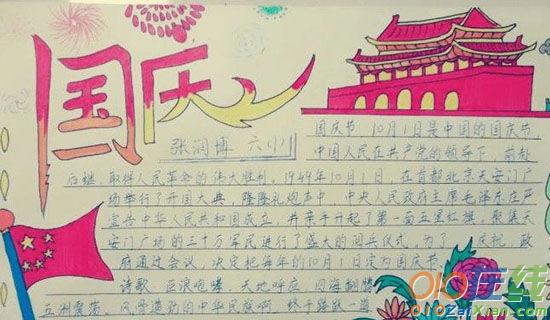 国庆
张润博 六(1)
国庆节,10月1日是中国的国庆节,
中国人民在共产党的领导下,前赴
后继,取得人民革命的伟大胜利,1949年10月1日,在首都北京天安门广
场举行了开国大典,隆隆礼炮声中,中央人民政府主席毛泽东庄严
宣告中华人民共和国成立,并亲手升起了第一面五星红旗,聚集天
安门广场的三十万军民进行了盛大的阅兵仪式,为了 庆祝,政
府通过会议,决定把每年的10月1日定为国庆节.
诗歌,巨浪咆哮,天地呼应,四海翻腾
五洲震荡,风雷激励的中华民族啊,终于踏踏一道
在线
ZaiXian.com